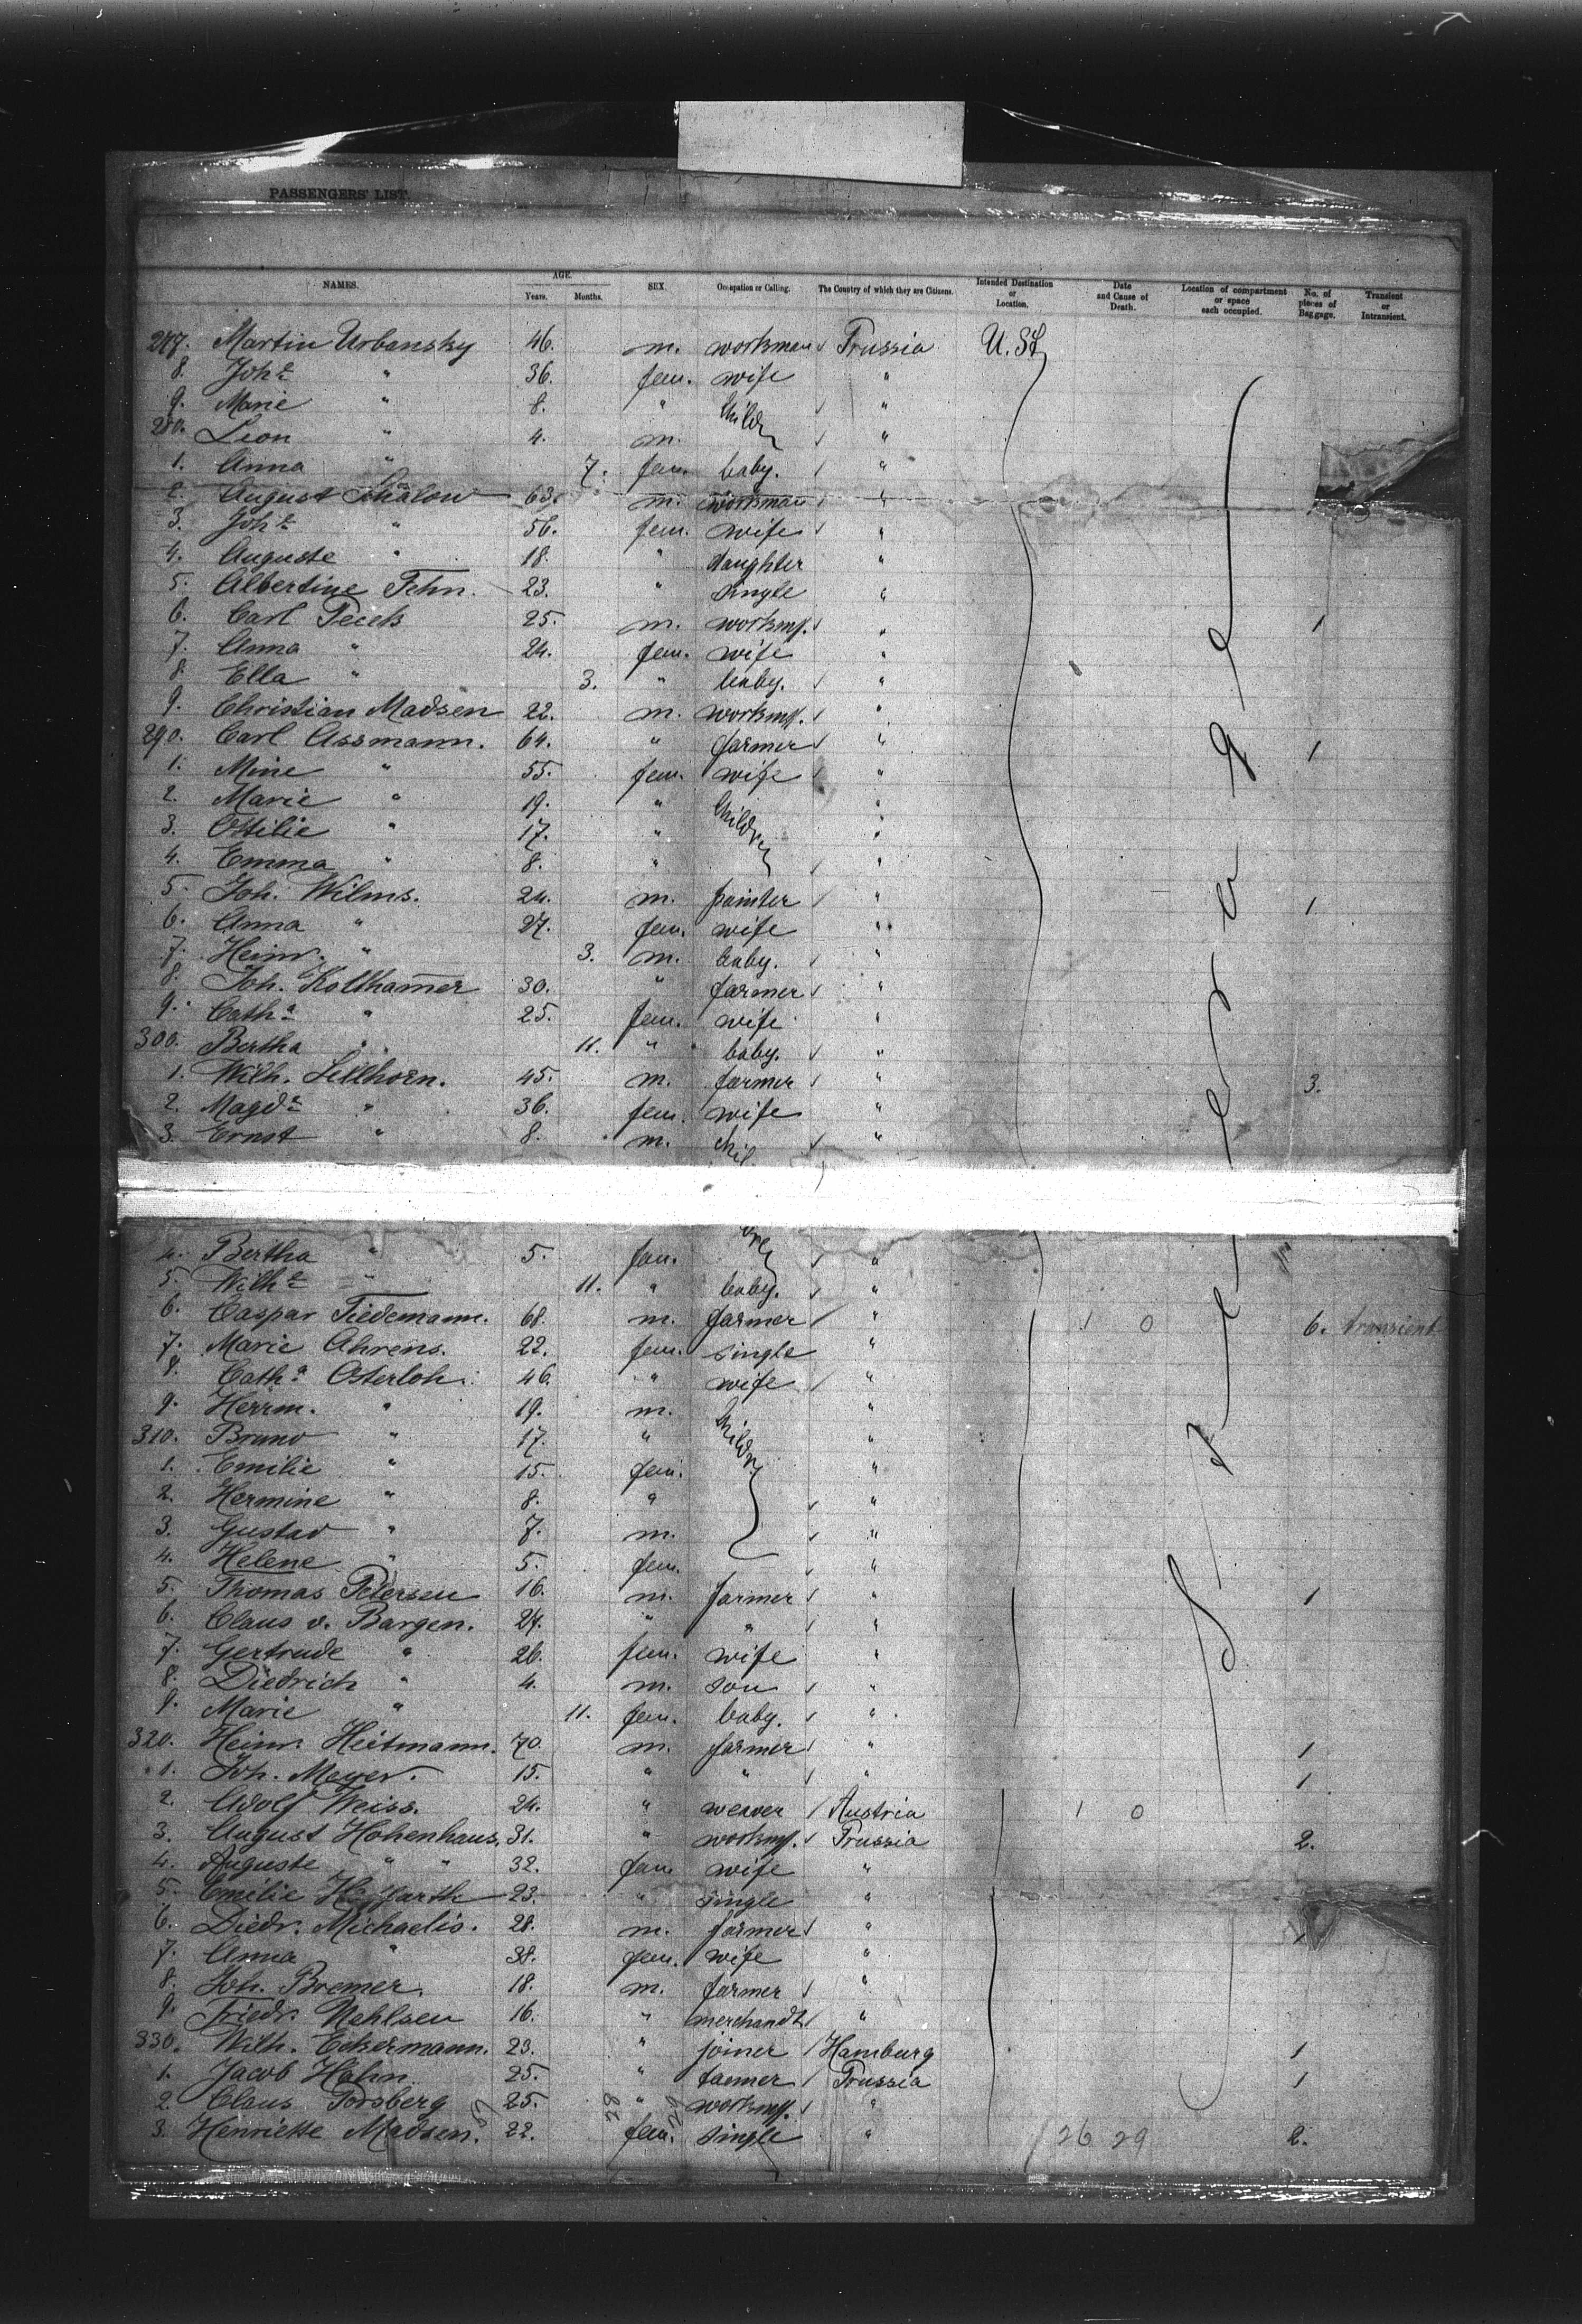 PASSENGERS' LIST.
NAMES. AGE. Years. Months. SEX. Occupation or Calling. The Country of which they are Citizens. Intended Destination or Location. Date and Cause of Death. Location of compartment or space each occupied. No. of pieces of Baggage. Transient or Intransient.
277. Martin Urbansky 46. m. workman Prussia U. St
8. Joh.ᵉ " 36. fem. wife "
9. Marie " 8. " Childr "
280. Leon " 4. m. "
1. Anna " 7. fem. baby. "
2. August 63. m. workman "
3. Joh.ᵉ " 56. fem. wife "
4. Auguste " 18. " daughter "
5. Albertine Fehn. 23. " single "
6. Carl 25. m. workm. " 1
7. Anna " 24. fem. wife "
8. Ella " 3. " baby. "
9. Christian Madsen 22. m. workm. "
290. Carl Assmann. 64. " farmer " 1
1. Mine " 55. fem. wife "
2. Marie " 19. " Children "
3. Ottilie " 17. " "
4. Emma " 8. " "
5. Joh. Wilms. 24. m. painter " 1
6. Anna " 27. fem. wife "
7. Heinr. " 3. m. baby. "
8. Joh. Kolthamer 30. " farmer "
9. Cath.ᵃ " 25. fem. wife "
300. Bertha " 11. " baby. "
1. Wilh. Sellhorn. 45. m. farmer " 3.
2. Magd.ᵃ " 36. fem. wife "
3. Ernst " 8. m. chil "
4. Bertha " 5. fem. dren "
5. Wilh.ᵉ " 11. " baby. "
6. Caspar Tiedemann. 68. m. farmer " 1 0 6. transient
7. Marie Ahrens. 22. fem. single "
8. Cath.ᵃ Osterloh. 46. " wife "
9. Herrm. " 19. m. Childr. "
310. Bruno " 17. " "
1. Emilie " 15. fem. "
2. Hermine " 8. " "
3. Gustav " 7. m. "
4. Helene " 5. fem. "
5. Thomas Petersen 16. m. farmer " 1
6. Claus v. Bargen. 27. " " "
7. Gertrude " 26. fem. wife "
8. Diedrich " 4. m. son "
9. Marie " 11. fem. baby. "
320. Heinr. Heitmann. 70. m. farmer " 1
1. Joh. Meyer. 15. " " " 1
2. Adolf Weiss. 24. " weaver Austria 1 0
3. August Hohenhaus. 31. " workm. Prussia 2.
4. Auguste " " 32. fem wife "
5. Emilie 23. " single "
6. Diedr. Michaelis. 28. m. farmer "
7. Anna " 38. fem. wife "
8. Joh. Bremer. 18. m. farmer "
9. Friedr. Nehlsen 16. " merchandt "
330. Wilh. Eckermann. 23. " joiner Hamburg 1
1. Jacob Hahn 25. " farmer Prussia 1
2. Claus Porsberg 25. " workm. "
3. Henriette Madsen. 22. fem. single " 26 29 2.